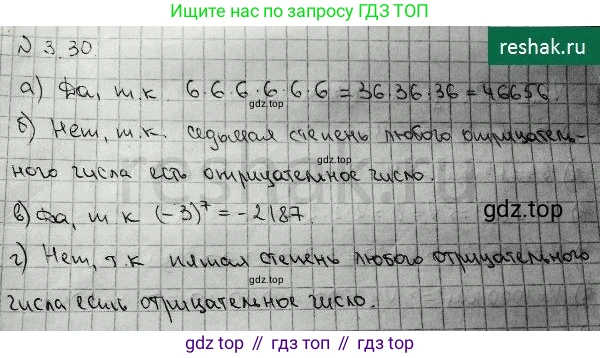 Ищите нас по запросу ГДЗ ТОП
№ 3.30.
reshak.ru
а) Да, т.к. 6·6·6·6·6·6 = 36·36·36 = 46656.
gdz.top
б) Нет, т.к. седьмая степень любого отрицатель-
gdz.top
ного числа есть отрицательное число.
reshak.ru
в) Да, т.к (-3)⁷ = -2187.
gdz.top
г) Нет, т.к пятая степень любого отрицательного
gdz.top
числа есть отрицательное число.
gdz.top // гдз.топ // гдз топ